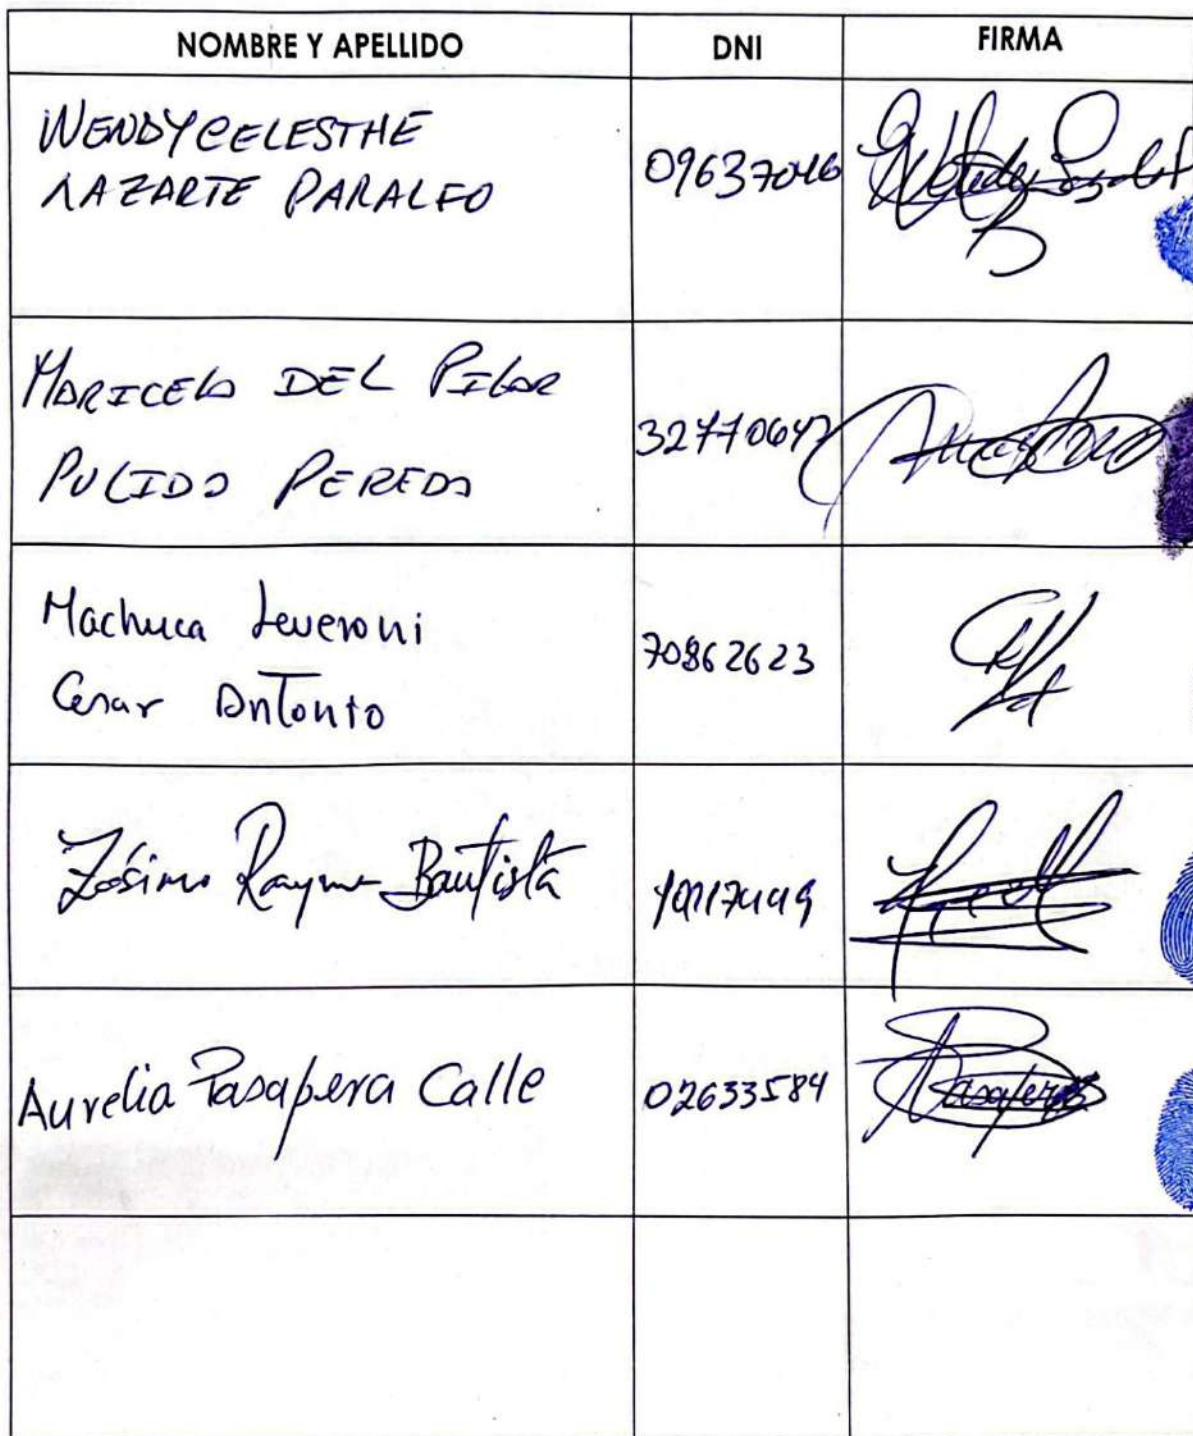 NOMBRE Y APELLIDO DNI FIRMA
WENDY CELESTHE
LAZARTE PARALFO
09637046
MARICELA DEL PILAR
PULIDO PEREDA
32770647
Machuca Leveroni
Cesar Antonio
70862623
Zósimo Rayme Bautista
Aurelia Pasapera Calle
02633584
Pasapera